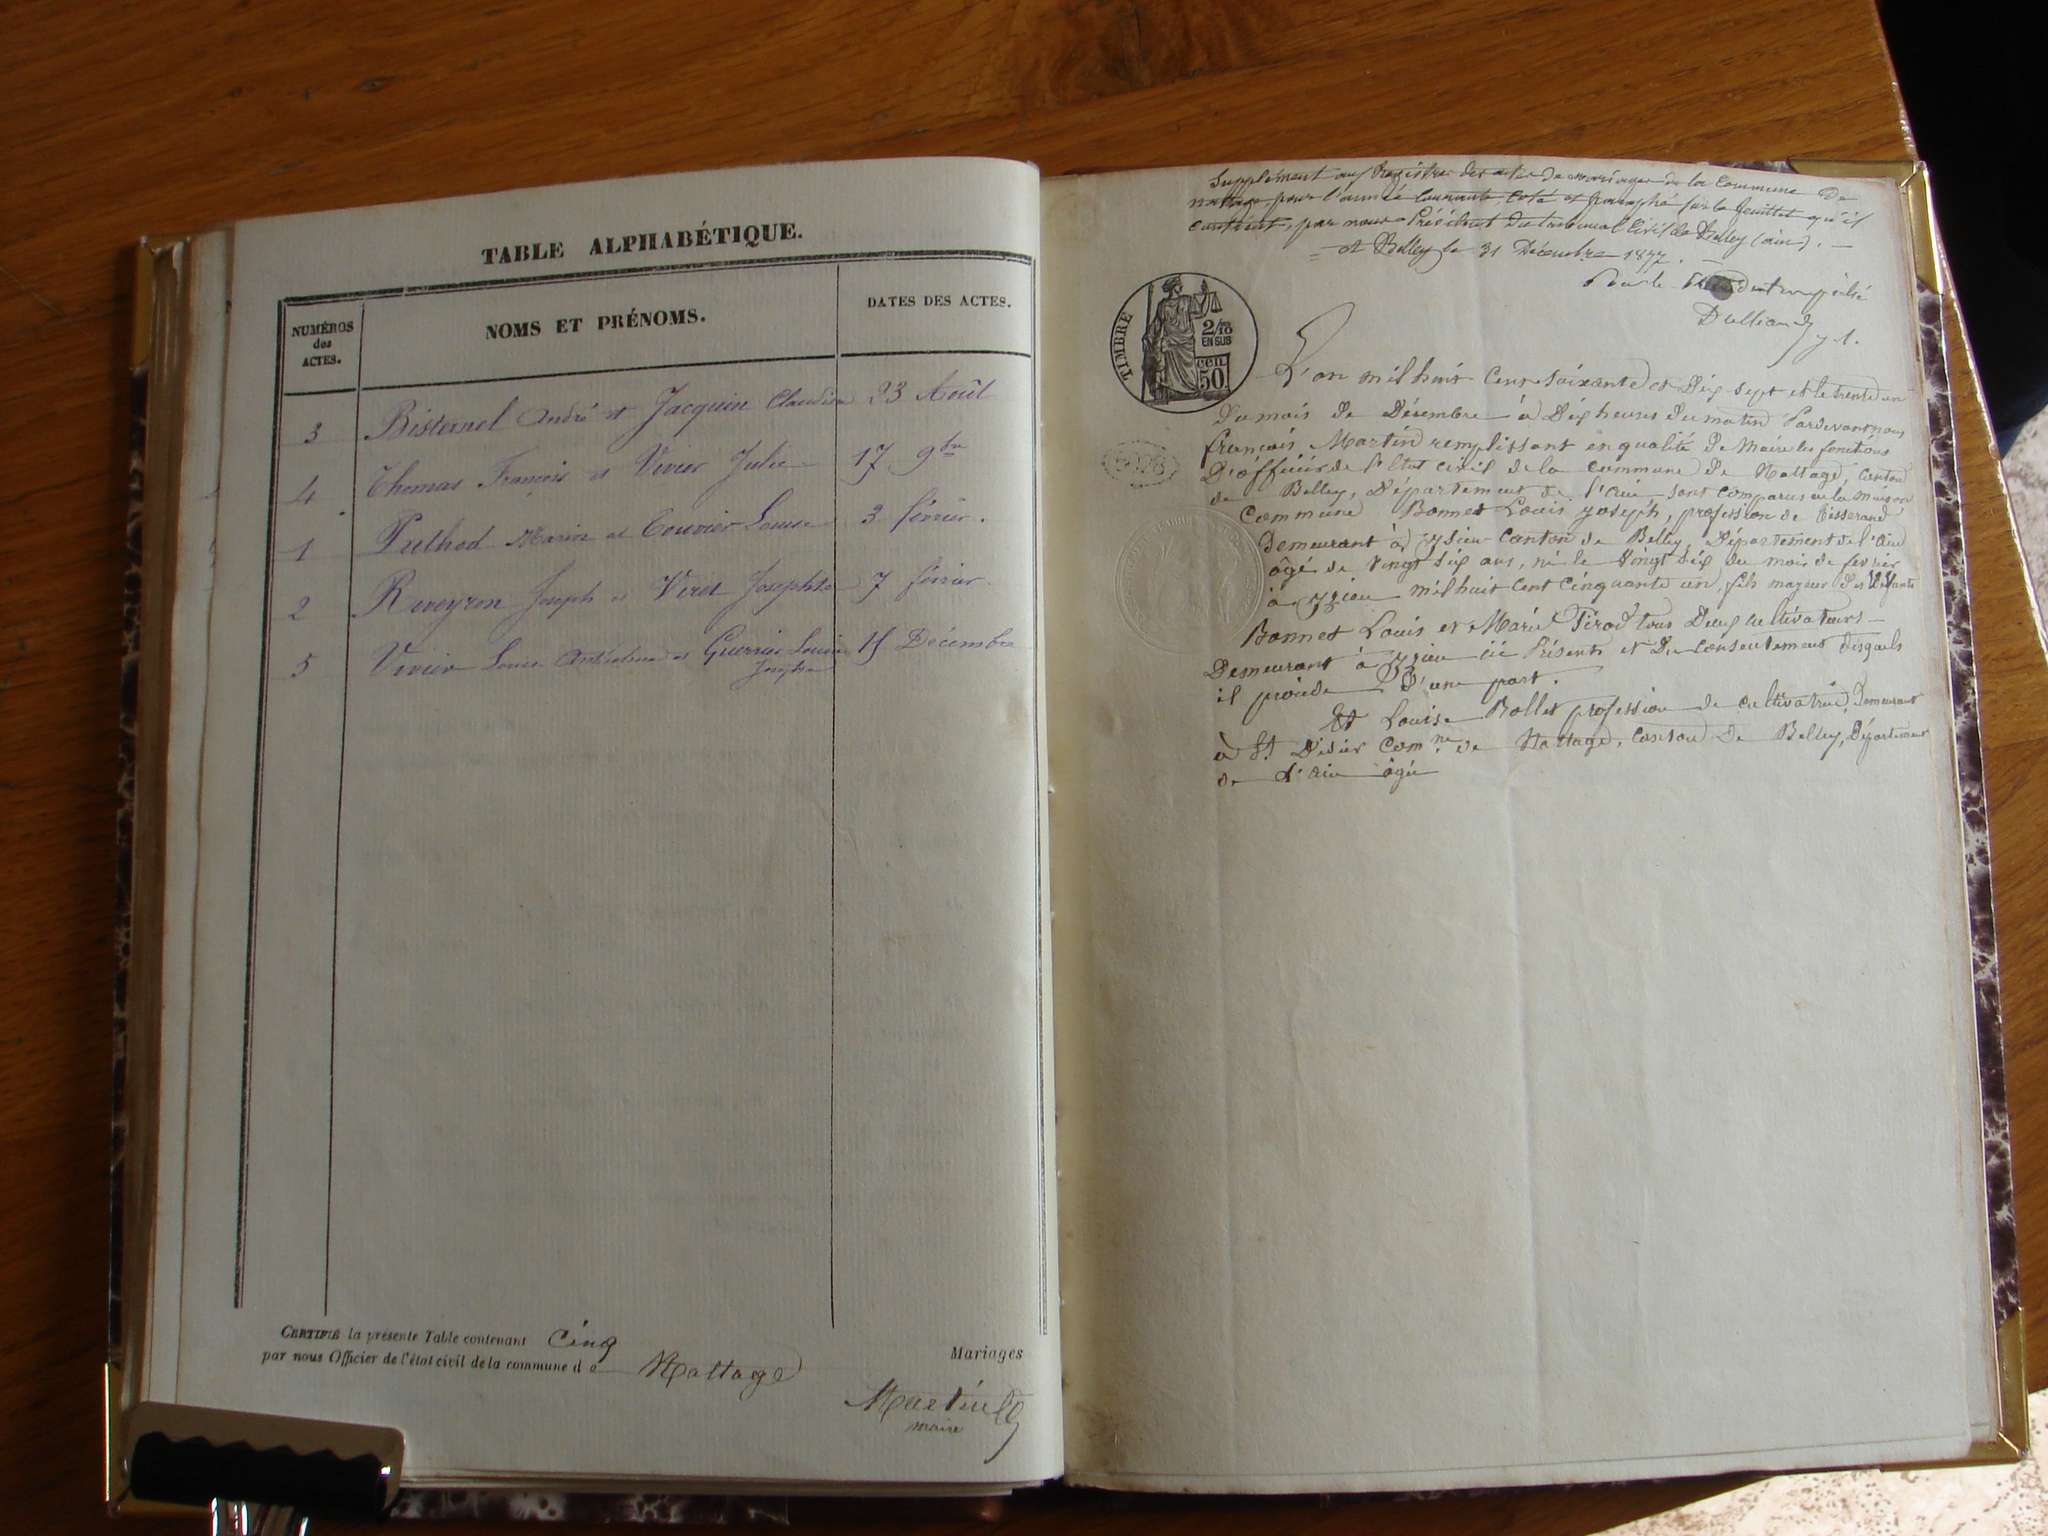 TABLE ALPHABÉTIQUE.
NUMÉROS
des
ACTES.
NOMS ET PRÉNOMS.
DATES DES ACTES.
3 Bisternel André et Jacquin Claudine 23 Août
4 Thomas François et Vivier Julie 17 9bre
1 Pulhod Marin et Couvier Louise 3 février.
2 Reveyron Joseph et Viret Josephte 7 février.
5 Vivier Louis Anthelme et Guerrier Louise 15 Décembre
Josephte
CERTIFIÉ la présente Table contenant Cinq Mariages
par nous Officier de l'état civil de la commune de Nattage
Martin
maire
Supplément au Registre des actes de mariages de la Commune De
nattage pour l'année courante, coté et paraphé sur le feuillet qu'il
contient, par nous Président du tribunal Civil de Belley (ain). —
= A Belley le 31 Décembre 1877.
Pour le Président empêché
TIMBRE
2/10
EN SUS
50 cen.
L'an mil huit cent soixante et Dix sept et le trente un
Du mois de Décembre à Dix heures du matin Pardevant nous
françois Martin remplissant en qualité De Maire les fonctions
D'officier de l'Etat civil de la commune De Nattage, canton
de Belley, Département de l'Ain sont comparus en la maison
Commune Bonnet Louis joseph, profession de tisserand
Demeurant à ysieu canton de Belley, Département de l'Ain
âgé de vingt six ans, né le vingt six du mois de février
à ysieu mil huit cent cinquante un, fils majeur des
Bonnet Louis et Marie Tirod tous Deux cultivateurs —
Demeurant à ysieu ici Présents et Du consentement Desquels
il procède D'une part.
Et Louise Rollet profession de cultivatrice, Demeurant
à St. Didier Comne de Nattage, Canton De Belley, Département
de l'Ain âgée